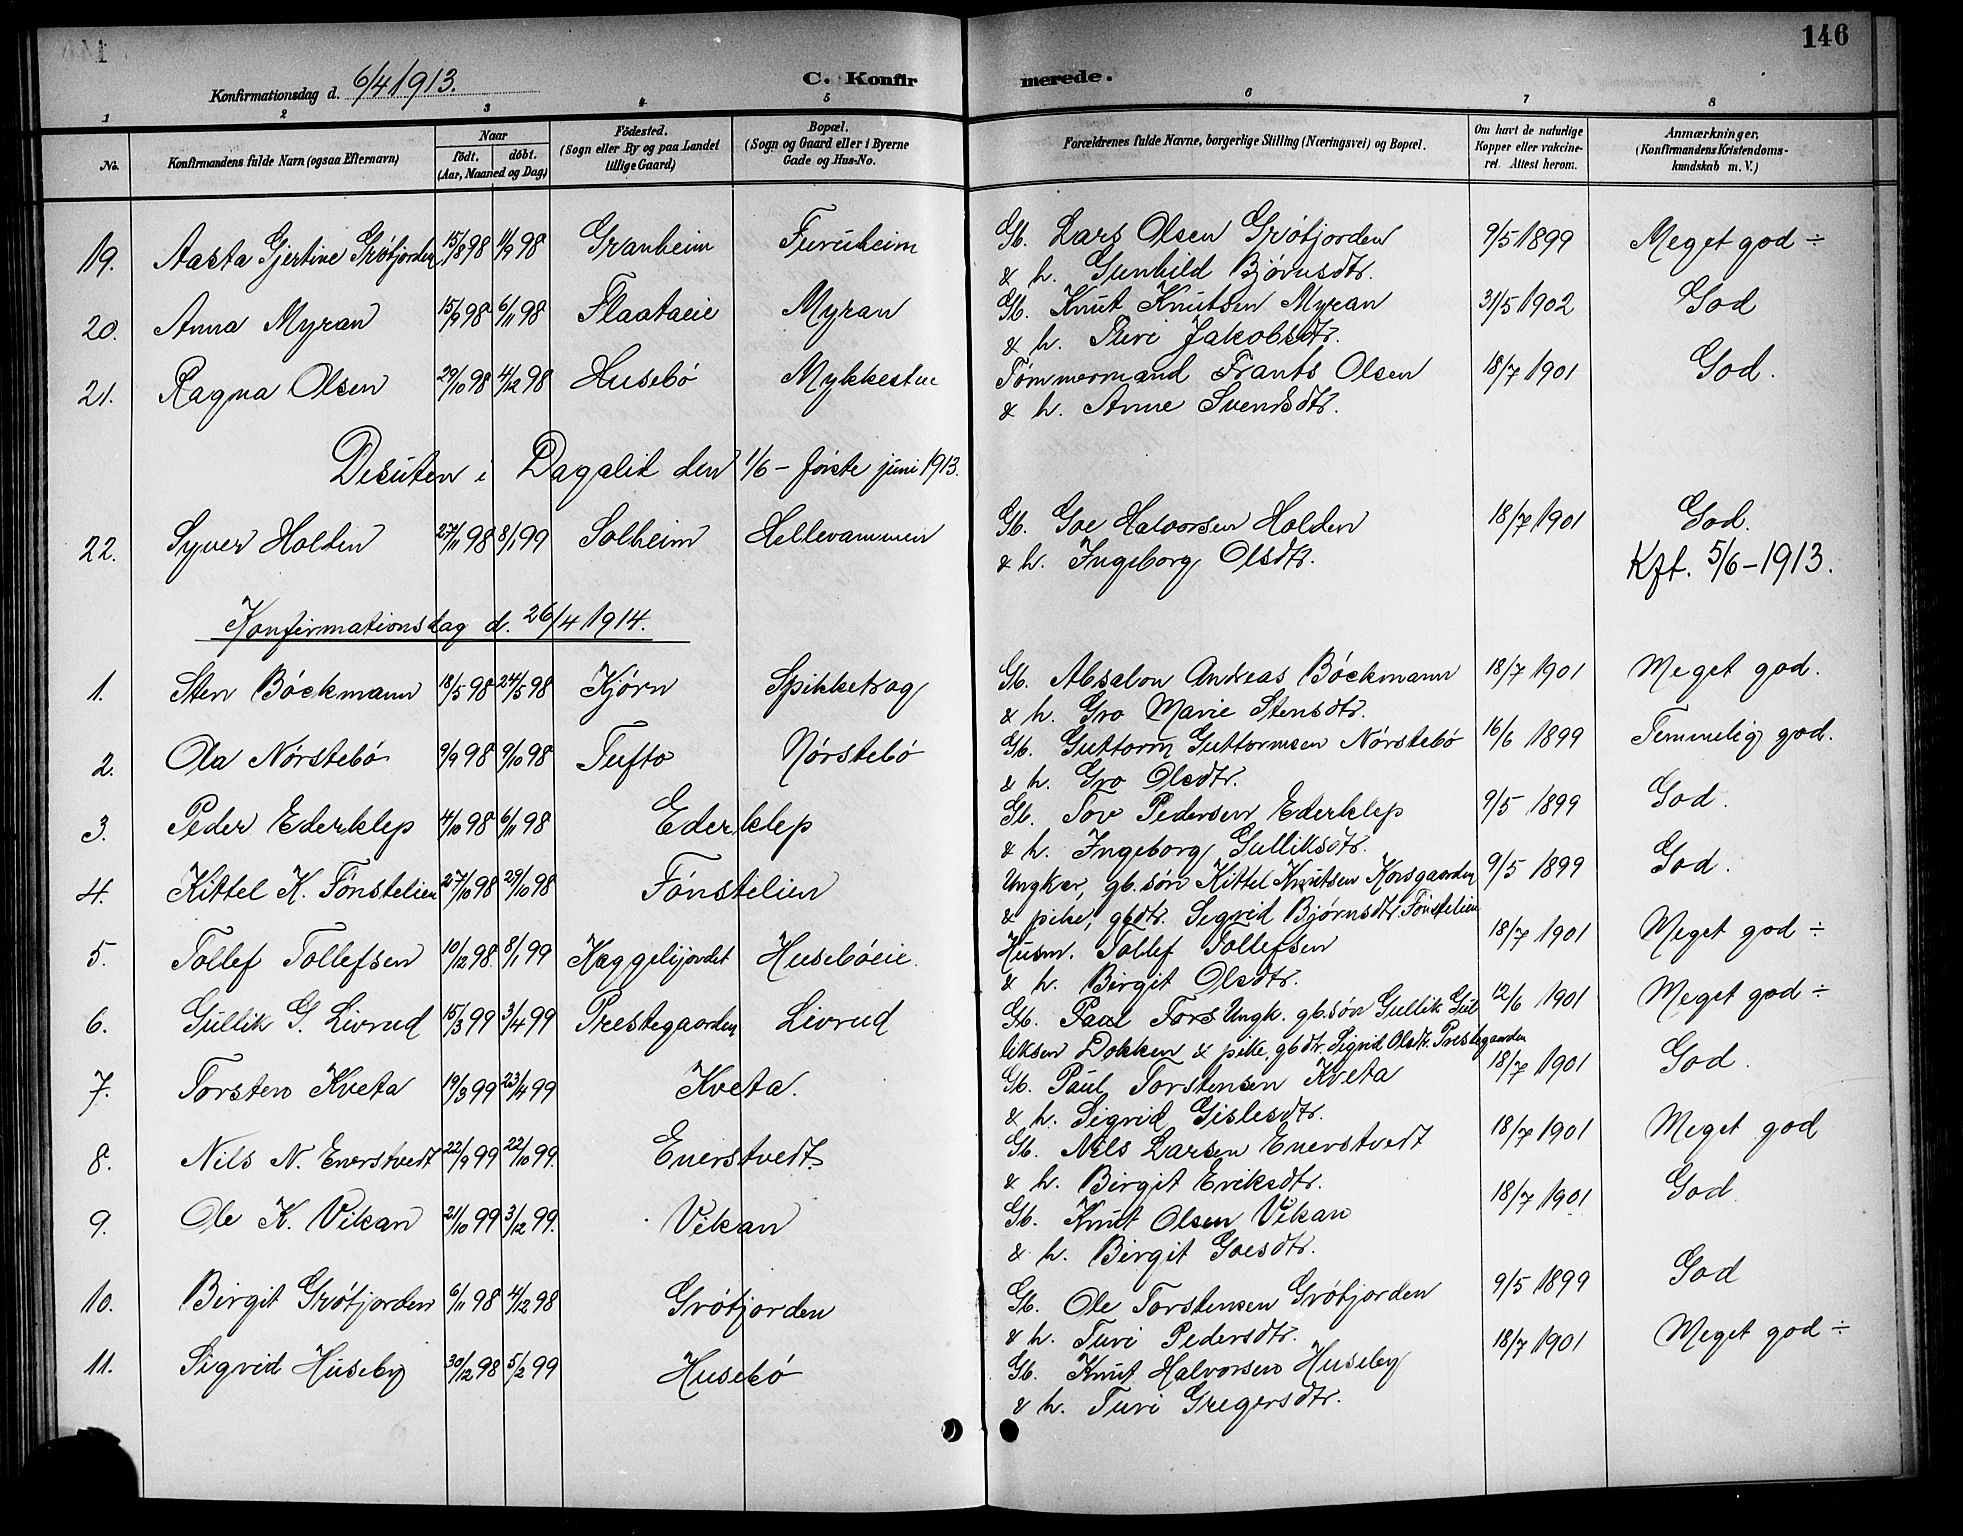 146
Konfirmationsdag d. 6/4 1913. C. Konfirmerede.
1 2 3 4 5 6 7 8
No. Konfirmandens fulde Navn (ogsaa Efternavn) Naar födt. döbt. (Aar, Maaned og Dag) Födested. (Sogn eller By og paa Landet tillige Gaard) Bopæl. (Sogn og Gaard eller i Byerne Gade og Hus-No. Forældrenes fulde Navne, borgerlige Stilling (Næringsvei) og Bopæl. Om havt de naturlige Kopper eller vakcineret. Attest herom. Anmærkninger. (Konfirmandens Kristendomskundskab m. V.)
19. Aasta Gjertine Grótjorden 15/8 98 11/9 98 Granheim Furuheim Gb. Lars Olsen Grótjorden 9/5 1899 Meget god ÷
& h. Gunhild Bjørnsdtr.
20. Anna Myran 15/9 98 6/11 98 Flaataeie Myran Gb. Knut Knutsen Myran 31/5 1902 God
& h. Turi Jakobsdtr.
21. Ragna Olsen 29/10 98 4/12 98 Husebó Mykkestue Tømmermand Frants Olsen 18/7 1901 God.
& h. Anne Svensdtr.
Desuten i Dagalid den 1/6 – förste juni 1913.
22. Syver Holden 27/11 98 8/1 99 Solheim Hellevammen Gb. Goe Halvorsen Holden 18/7 1901 God.
& h. Ingeborg Olsdtr. Kft. 5/6 – 1913.
Konfirmationsdag d. 26/4 1914.
1. Sten Böckmann 18/5 98 24/5 98 Kjörn Spikketrog Gb. Absalon Andreas Böckmann 18/7 1901 Meget god.
& h. Gro Marie Stensdtr.
2. Ola Nórstebó 9/9 98 9/10 98 Tufto Nórstebó Gb. Guttorm Guttormsen Nórstebó 16/6 1899 Temmelig god.
& h. Gro Olsdtr.
3. Peder Ederklep 4/10 98 6/11 98 Ederklep Gb. Tov Pedersen Ederklep 9/5 1899 God.
& h. Ingeborg Gulliksdtr.
4. Kittel K. Fónstelien 27/10 98 29/10 98 Fónstelien Ungkar, gb. sön Kittel Knutsen Korsgaarden 9/5 1899 God.
& pike, gbdtr. Sigrid Bjørnsdtr. Fónstelien
5. Tollef Tollefsen 10/12 98. 8/1 99 Haggelijordet Husebóeie. Husm. Tollef Tollefsen 18/7 1901 Meget god ÷
& h. Birgit Olsdtr.
6. Gullik G. Livrud 15/3 99 3/4 99 Prestegaarden Livrud Gb. Paul Tors Ungk. gb. sön Gullik Gul 12/6 1901 Meget god ÷
liksen Dokken & pike, gbdtr. Sigrid Olsdtr. Prestegaarden
7. Torsten Kveta 19/3 99 23/4 99 Kveta. Gb. Paul Torstensen Kveta 18/7 1901 God.
& h. Sigrid Gislesdtr.
8. Nils N. Enerstvedt 22/9 99 22/10 99. Enerstvedt Gb. Nils Larsen Enerstvedt 18/7 1901 Meget god
& h. Birgit Eriksdtr.
9. Ole K. Vikan 21/10 99 3/12 99. Vikan Gb. Knut Olsen Vikan 18/7 1901 God.
& h. Birgit Goesdtr.
10. Birgit Grótjorden 6/11 98 4/12 98 Grótjorden Gb. Ole Torstensen Grótjorden 9/5 1899 God
& h. Turi Pedersdtr.
11. Sigrid Huseby 30/12 98 5/2 99 Husebó Gb. Knut Halvorsen Huseby 18/7 1901 Meget god ÷
& h. Turi Gregersdtr.